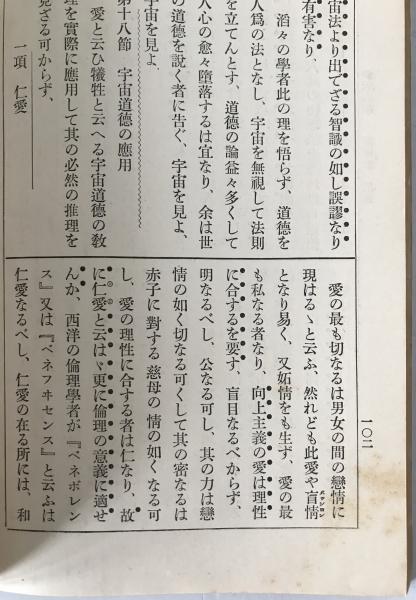 宙法より出でざる智識の如し誤謬なり
有害なり、
滔々の學者此の理を悟らず、道德を
人爲の法となし、宇宙を無視して法則
を立てんとす、道德の論益々多くして
人心の愈々墮落するは宜なり、余は世
の道德を說く者に告ぐ、宇宙を見よ、
宇宙を見よ、
第十八節 宇宙道德の應用
愛と云ひ犧牲と云へる宇宙道德の敎
理を實際に應用して其の必然の推理を
見ざる可からず、
一項 仁愛
一〇二
愛の最も切なるは男女の間の戀情に
現はるゝと云ふ、然れども此愛や盲情
となり易く、又妬情をも生ず、愛の最
も私なる者なり、向上主義の愛は理性
に合するを要す、盲目なるべからず、
明なるべし、公なる可し、其の力は戀
情の如く切なる可くして其の密なるは
赤子に對する慈母の情の如くなる可
し、愛の理性に合する者は仁なり、故
に仁愛と云はゞ更に倫理の意義に適せ
んか、西洋の倫理學者が『ベネボレン
ス』又は『ベネフヰセンス』と云ふは
仁愛なるべし、仁愛の在る所には、和